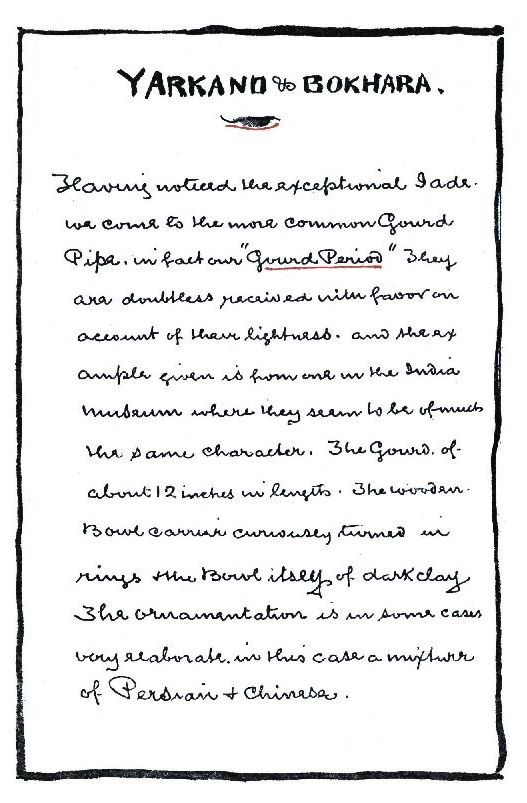 YARKAND & BOKHARA.
Having noticed the exceptional Jade.
we come to the more common Gourd
Pipe. in fact our "Gourd Period" They
are doubtless received with favor on
account of their lightness. and the ex
ample given is from one in the India
Museum where they seem to be of much
the same character. The Gourd. of
about 12 inches in length. The wooden.
Bowl carrier curiously turned in
rings & the Bowl itself of dark clay
The ornamentation is in some cases
very elaborate. in this case a mixture
of Persian & Chinese.